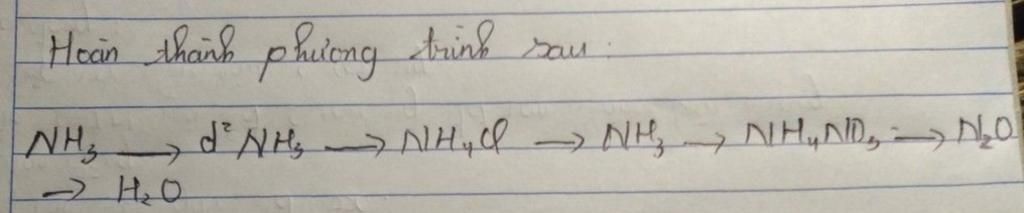 Hoàn thành phương trình sau:
NH₃ → d² NH₃ → NH₄Cl → NH₃ → NH₄NO₃ → N₂O
→ H₂O